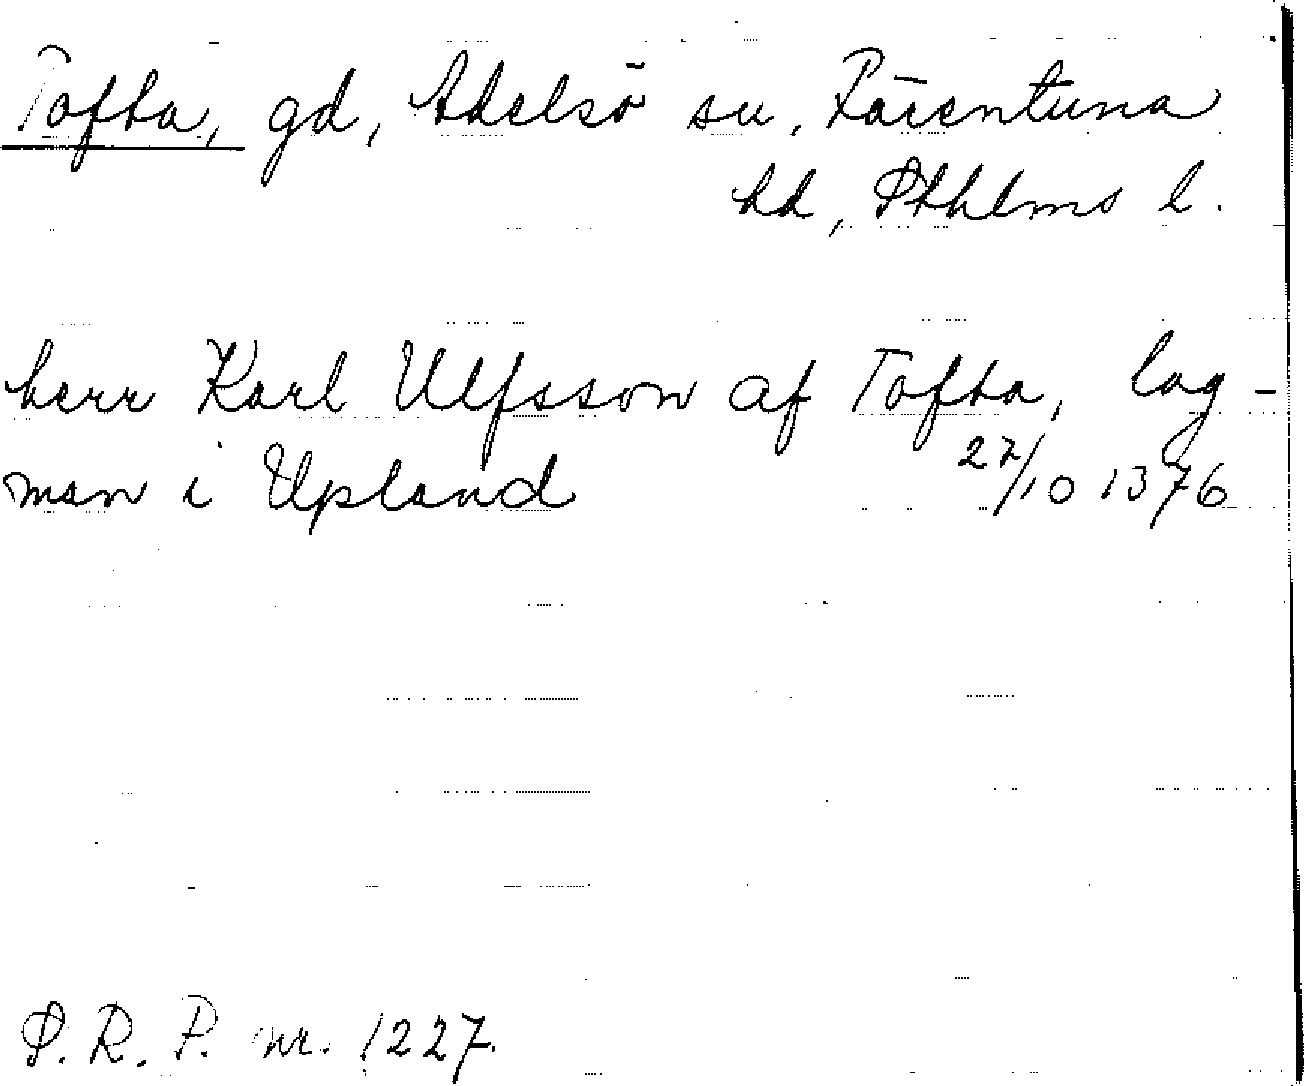 Tofta, gd, Adelsö sn, Färentuna
hd, Sthlms l.
herr Karl Ulfsson af Tofta, lag-
man i Upland 27/10 1376
S. R. P. nr. 1227.